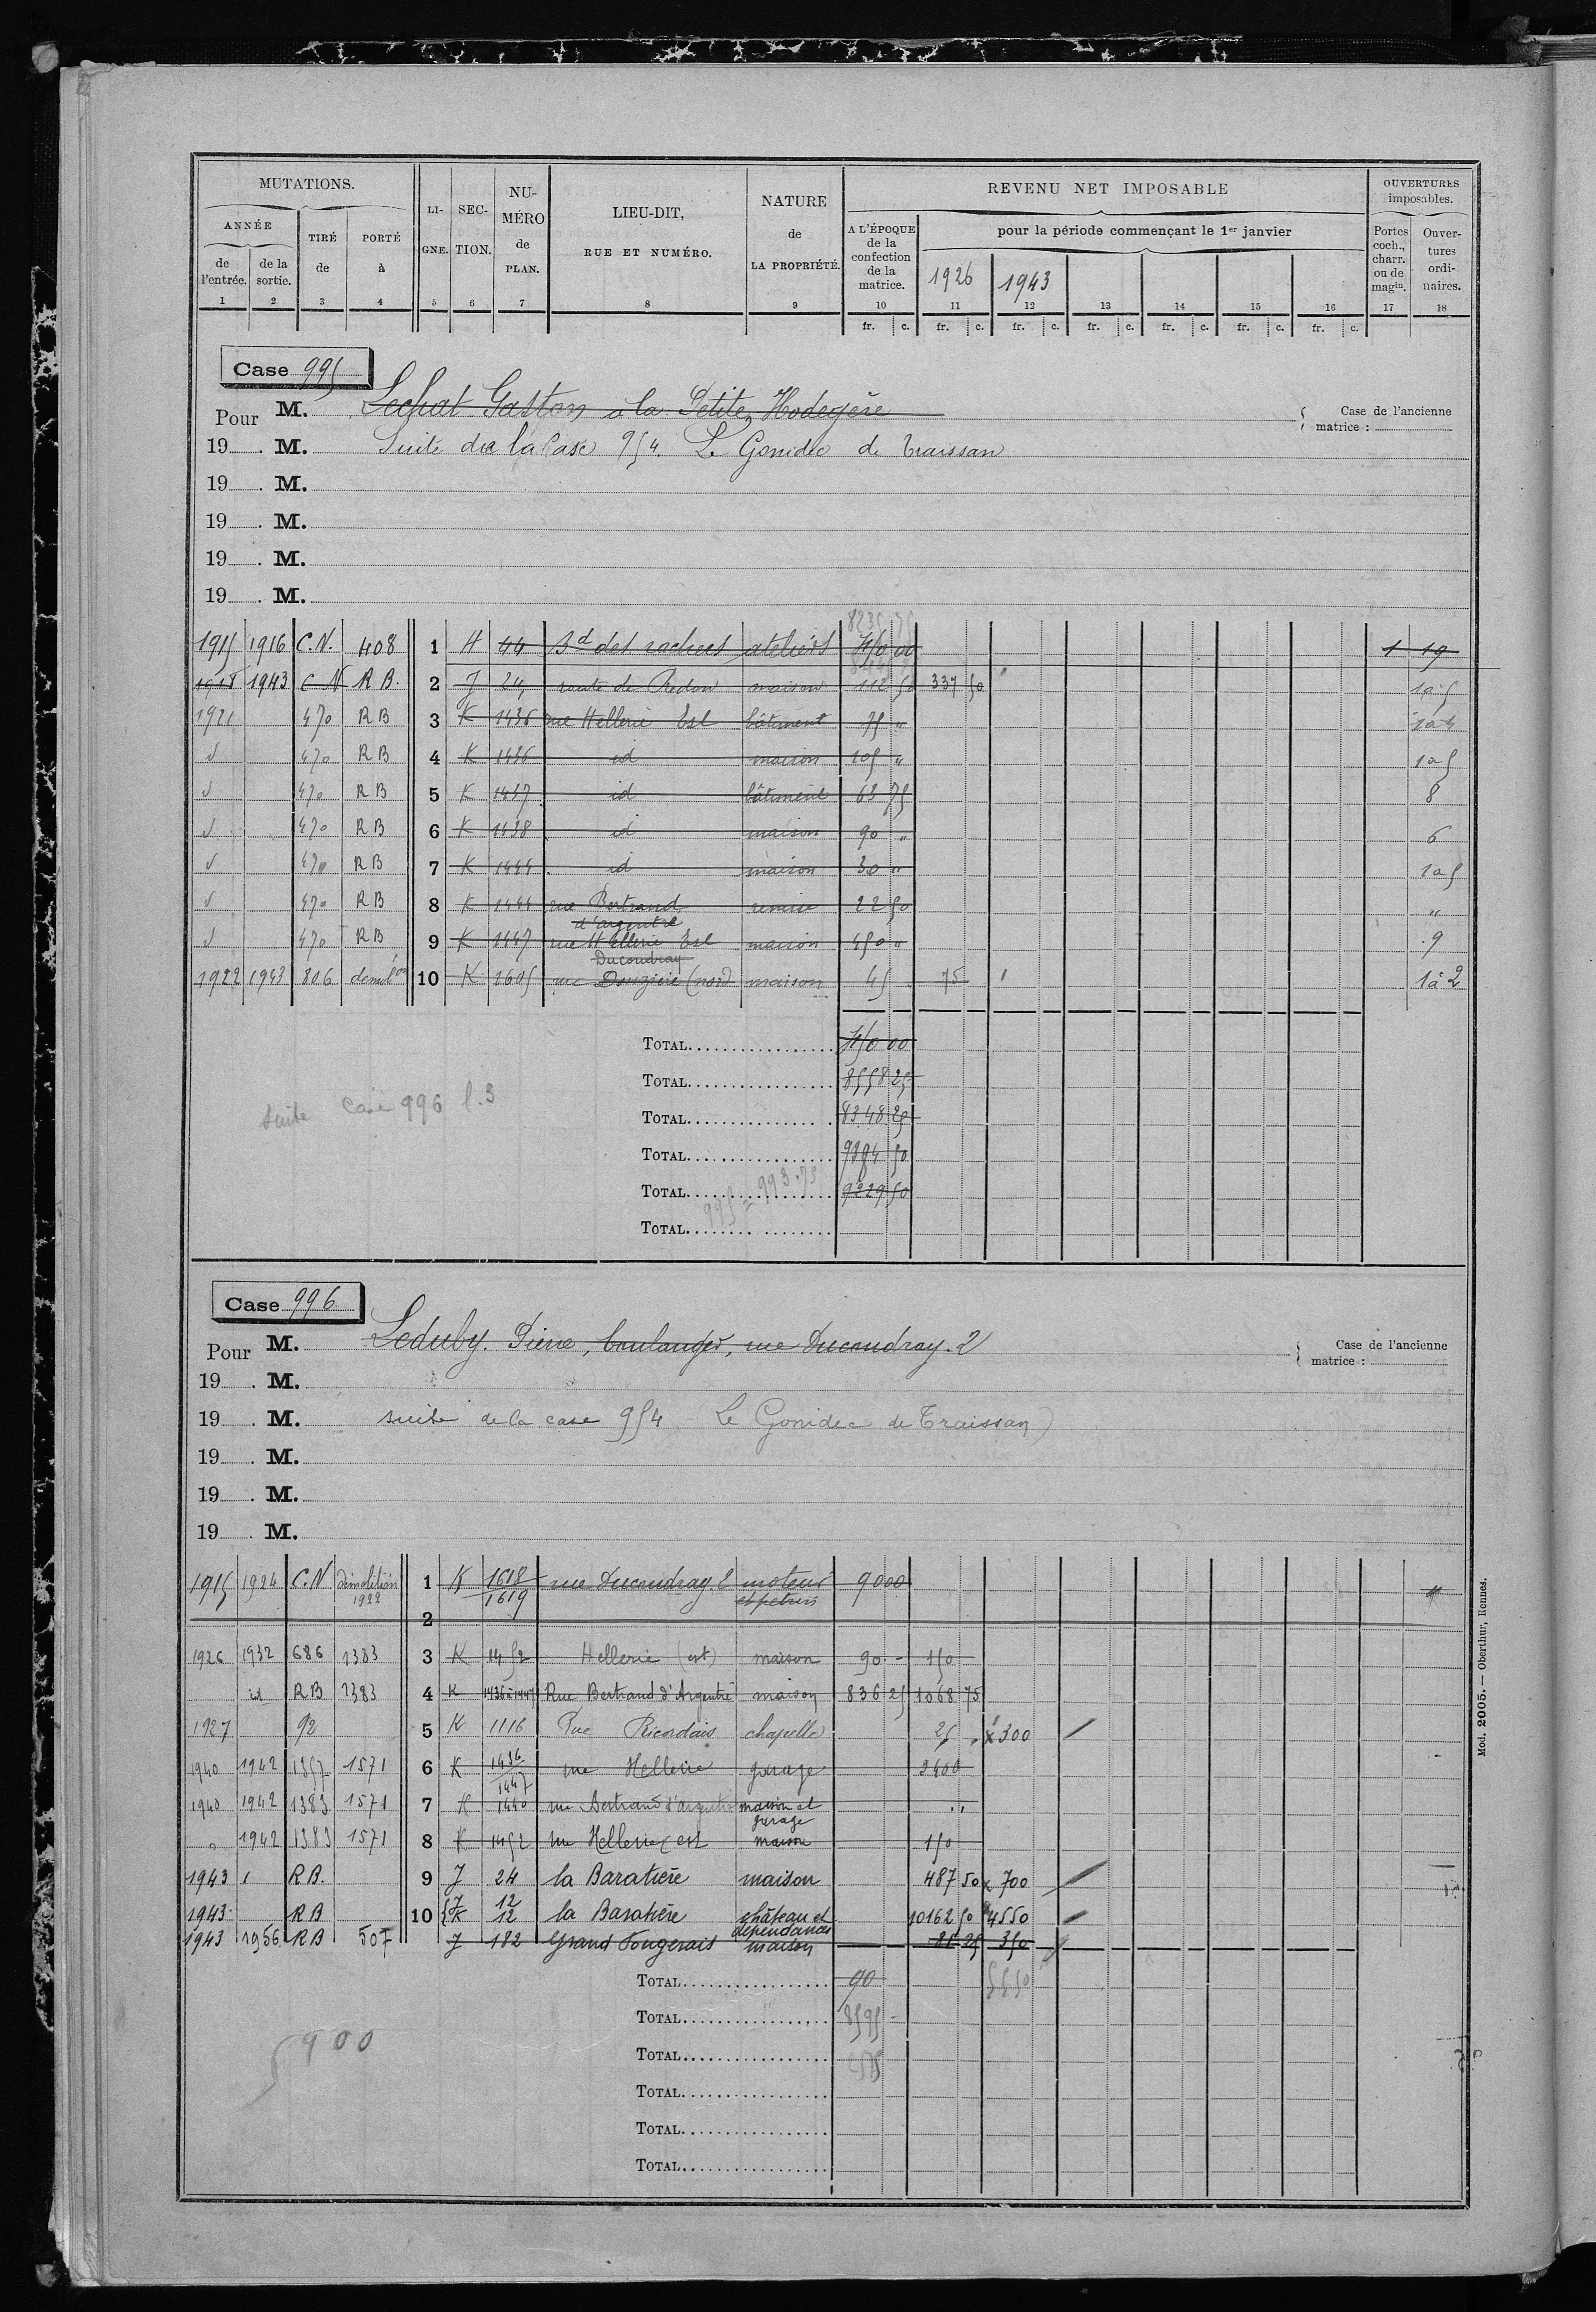 MUTATIONS. LI- SEC- NU- LIEU-DIT, NATURE REVENU NET IMPOSABLE OUVERTURES
ANNÉE TIRÉ PORTÉ GNE. TION. MÉRO RUE ET NUMÉRO. de A L'ÉPOQUE pour la période commençant le 1er janvier imposables.
de l'entrée. de la sortie. de à de PLAN. LA PROPRIÉTÉ. de la confection de la matrice. 1926 1943 Portes coch., charr. ou de magin. Ouver- tures ordi- naires.
1 2 3 4 5 6 7 8 9 10 11 12 13 14 15 16 17 18
fr. c. fr. c. fr. c. fr. c. fr. c. fr. c. fr. c.
Case 995
Pour M. Lechat Gaston à la Petite Hodeyère Case de l'ancienne matrice :
19 . M. Suite de la Case 954. Le Gonidec de Traissan
19 . M.
19 . M.
19 . M.
19 . M.
1915 1916 C.N. 408 1 H 44 Bd des rochers ateliers 1 19
1918 1943 C N R B. 2 J 24 route de Redon maison 112 50 337 50 1à5
1921 470 R B 3 K 1436 rue Hellerie Est bâtiment 75 "
d 470 R B 4 K 1436 id maison 105 " 1à5
d 470 R B 5 K 1437 id bâtiment 63 75 8
d 470 R B 6 K 1438 id maison 90 " 6
d 470 R B 7 K 1444 id maison 30 " 1à5
d 470 R B 8 K 1444 rue Bertrand d'argentré remise 22 50 "
d 470 R B 9 K 1447 rue Hellerie Est maison 450 " 9
1922 1943 806 demolon 10 K 1605 rue Ducoudray (nord maison 45 75 1à2
TOTAL
TOTAL 8558 25
TOTAL 8348 25
TOTAL
TOTAL 9229 50
TOTAL
suite Case 996 l.3
995 = 993.75
Case 996
Pour M. Leduby. Pierre, boulanger, rue Ducoudray. 2 Case de l'ancienne matrice :
19 . M.
19 . M. suite de la case 954 - Le Gonidec de Traissan)
19 . M.
19 . M.
19 . M.
1915 1924 C.N démolition 1922 1 K 1618 1619 rue Ducoudray 2 moteur et pétrin 9000
2
1926 1932 686 1383 3 K 1452 Hellerie (est) maison 90 - 150
id RB 1383 4 K 1436 à 1447 Rue Bertrand d'Argentré maison 836 25 1068 75
1927 92 5 K 1116 Rue Ricordais chapelle 25 x 300
1940 1942 1357 1571 6 K 1436 1447 rue Hellerie garage 2400
1940 1942 1383 1571 7 K 1440 rue Bertrand d'argentré maison et garage "
" 1942 1383 1571 8 K 1452 rue Hellerie est maison 150
1943 R B. 9 J 24 la Baratière maison 487 50 x 700
1943 R B 10 J K 12 12 la Baratière château et dépendances 10162 50 4550
1943 1956 R B 507 J 182 Grand Fougerais maison 81 25 350
TOTAL 90 5550
TOTAL 8595 -
TOTAL
TOTAL
TOTAL
TOTAL
5900
Mod. 2005. — Oberthur, Rennes.